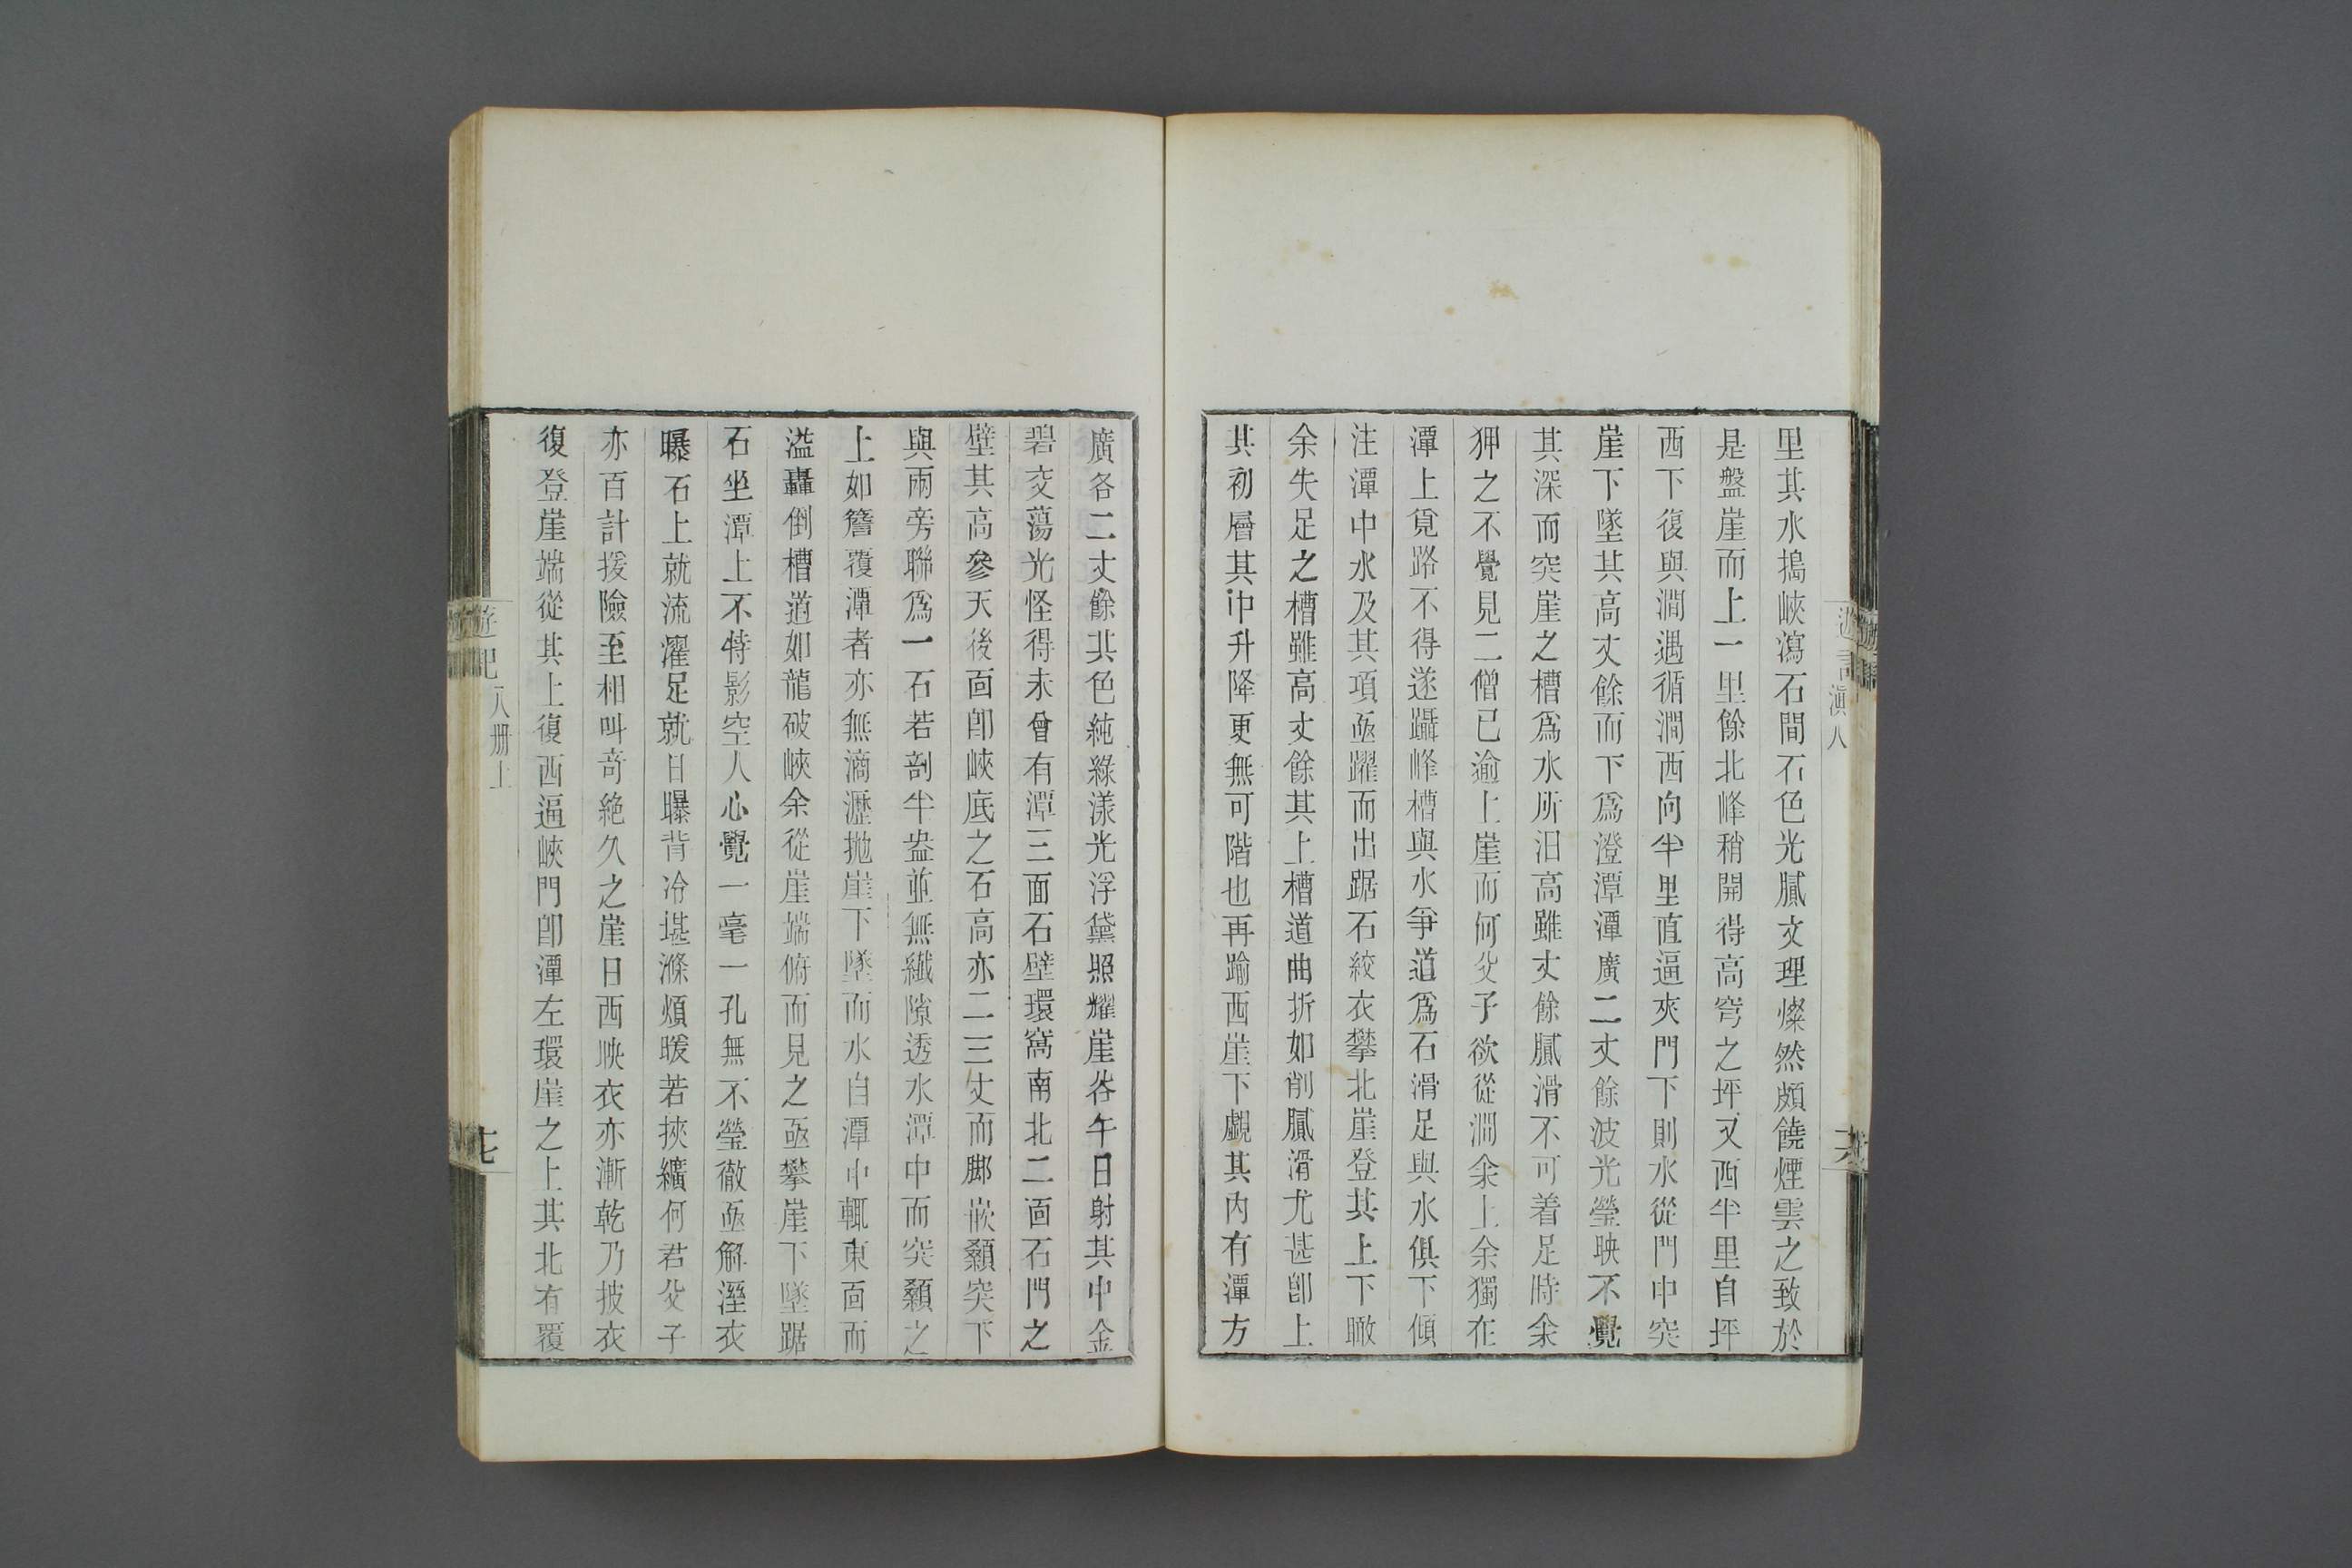 里其水搗峽瀉石間石色光膩文理燦然頗饒煙雲之致於
是盤崖而上一里餘北峰稍開得高穹之坪又西半里自坪
西下復與澗遇循澗西向半里直逼夾門下則水從門中突
崖下墜其高丈餘而下爲澄潭潭廣二丈餘波光瑩映不覺
其深而突崖之槽爲水所汨高雖丈餘膩滑不可着足時余
狎之不覺見二僧已逾上崖而何父子欲從澗余上余獨在
潭上覓路不得遂躡峰槽與水爭道爲石滑足與水俱下傾
注潭中水及其項亟躍而出踞石絞衣攀北崖登其上下瞰
余失足之槽雖高丈餘其上槽道曲折如削膩滑尤甚卽上
其初層其中升降更無可階也再踰西崖下覷其內有潭方
廣各二丈餘其色純綠漾光浮黛照耀崖谷午日射其中金
碧交蕩光怪得未曾有潭三面石壁環窩南北二面石門之
壁其高參天後面卽峽底之石高亦二三丈而脚嵌顙突下
與兩旁聯爲一石若剖半盎並無纖隙透水潭中而突顙之
上如簷覆潭者亦無滴瀝抛崖下墜而水自潭中輒東面而
溢轟倒槽道如龍破峽余從崖端俯而見之亟攀崖下墜踞
石坐潭上不特影空人心覺一毫一孔無不瑩徹亟解溼衣
曝石上就流濯足就日曝背冷堪滌煩暖若挾纊何君父子
亦百計援險至相叫奇絶久之崖日西映衣亦漸乾乃披衣
復登崖端從其上復西逼峽門卽潭左環崖之上其北有覆
遊記 滇八
六
遊記 八册上
七